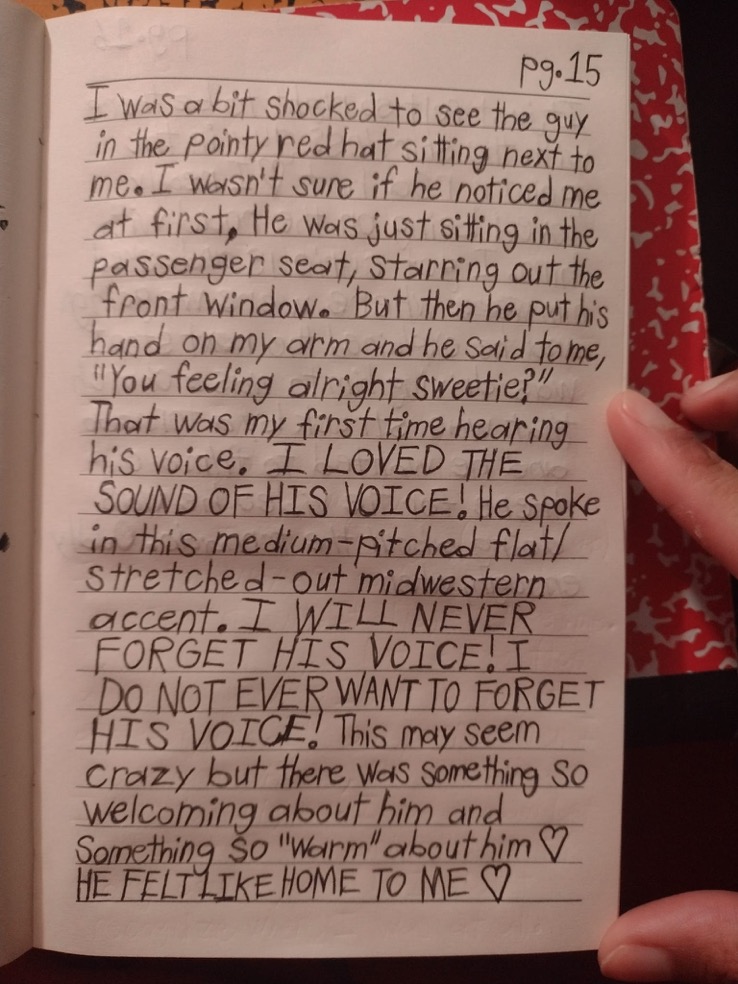 pg.15
I was a bit shocked to see the guy
in the pointy red hat sitting next to
me. I wasn't sure if he noticed me
at first, He was just sitting in the
passenger seat, starring out the
front window. But then he put his
hand on my arm and he said to me,
"You feeling alright sweetie?"
That was my first time hearing
his voice. I LOVED THE
SOUND OF HIS VOICE! He spoke
in this medium-pitched flat/
stretched-out midwestern
accent. I WILL NEVER
FORGET HIS VOICE! I
DO NOT EVER WANT TO FORGET
HIS VOICE! This may seem
crazy but there was something so
welcoming about him and
Something so "Warm" about him ♡
HE FELT LIKE HOME TO ME ♡